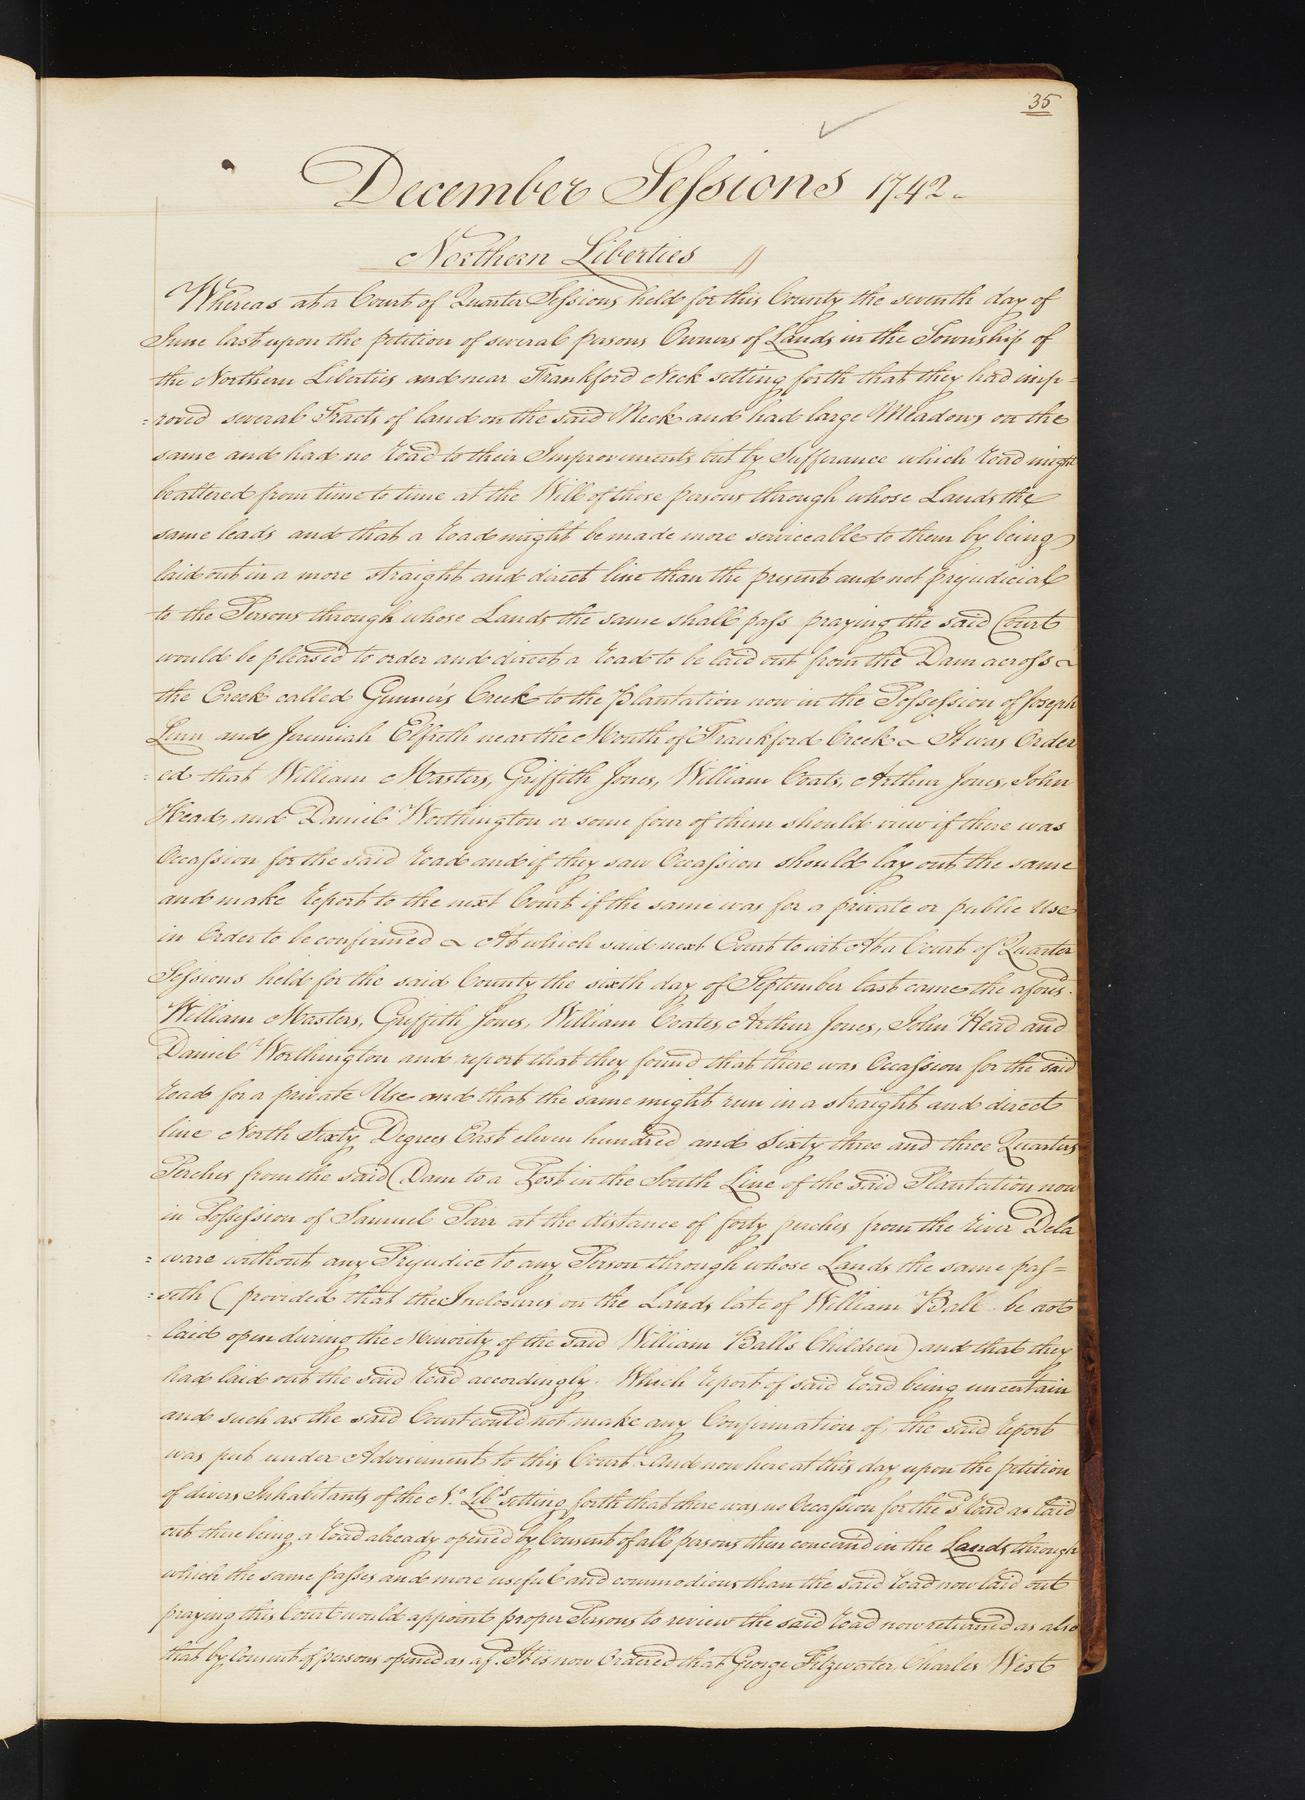 35
December Sessions 1742
Northern Liberties
Whereas at a Court of Quarter Sessions held for this County the seventh day of
June last upon the petition of several persons Owners of Lands in the Township of
the Northern Liberties and near Frankford Neck setting forth that they had imp=
=roved several Tracts of land on the said Neck and had large Meadows on the
same and had no Road to their Improvements but by Sufferance which Road might
be altered from time to time at the Will of those persons through whose Lands the
same leads and that a Road might be made more serviceable to them by being
laid out in a more straight and direct line than the present and not prejudicial
to the Persons through whose Lands the same shall pass praying the said Court
would be pleased to order and direct a Road to be laid out from the Dam across
the Creek called Gunner's Creek to the Plantation now in the Possession of Joseph
Linn and Jeremiah Elfreth near the Mouth of Frankford Creek It was Order
=ed that William Masters, Griffith Jones, William Coats, Arthur Jones, John
Head, and Daniel Worthington or some four of them should view if there was
Occassion for the said Road and if they saw Occassion should lay out the same
and make Report to the next Court if the same was for a private or public Use
in Order to be confirmed At which said next Court to wit At a Court of Quarter
Sessions held for the said County the sixth day of September last came the afors.
William Masters, Griffith Jones, William Coates, Arthur Jones, John Head and
Daniel Worthington and report that they found that there was Occassion for the said
Road for a private Use and that the same might run in a straight and direct
line North Sixty Degrees East eleven hundred and sixty three and three Quarters
Perches from the said Dam to a Post in the South Line of the said Plantation now
in Possession of Samuel Parr at the distance of forty perches from the River Dela
=ware without any Prejudice to any Person through whose Lands the same pas=
=seth (provided that the Inclosures on the Lands late of William Ball be not
laid open during the Minority of the said William Balls Children) and that they
had laid out the said Road accordingly. Which Report of said Road being uncertain
and such as the said Court could not make any Confirmation of, the said Report
was put under Advisement to this Court And now here at this day upon the petition
of divers Inhabitants of the No. Libs setting forth that there was no Occassion for the sd Road as laid
out there being a Road already opened by Consent of all persons then concernd in the Lands through
which the same passes and more useful and commodious than the said Road now laid out
praying this Court would appoint proper Persons to review the said Road now returned as also
that by Consent of persons opened as afd. It is now Ordered that George Fitzwater, Charles West